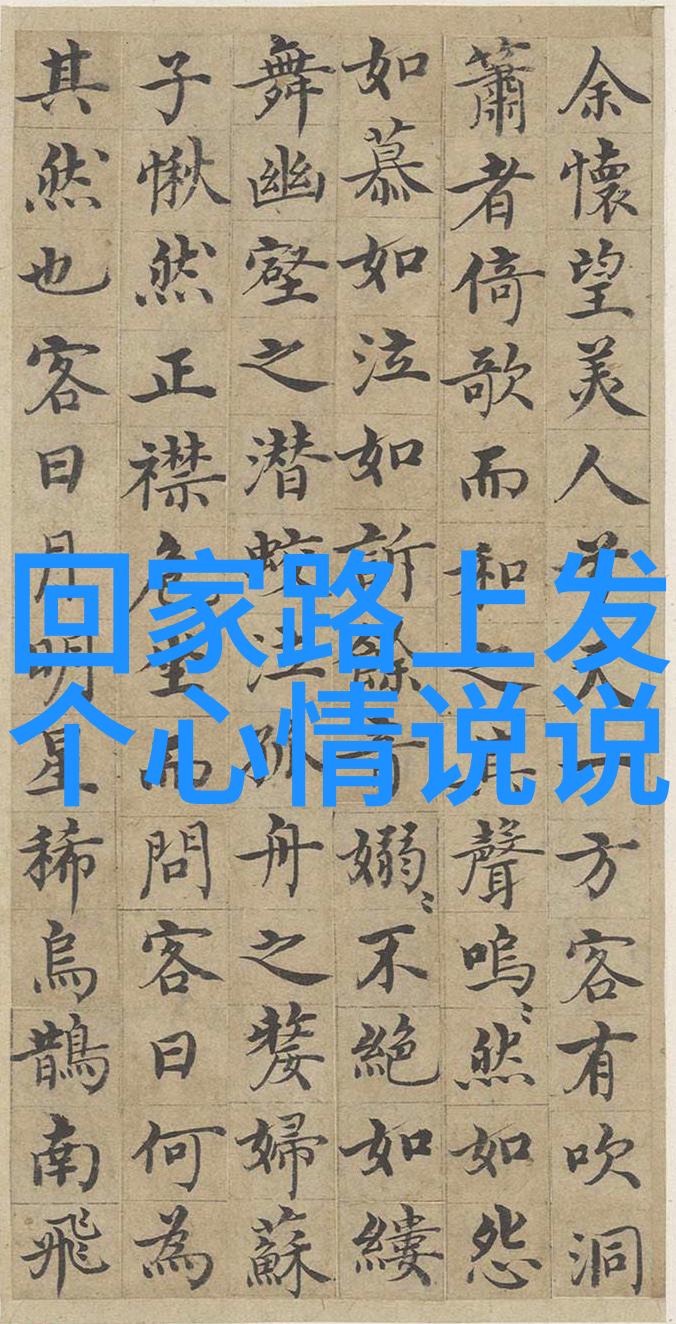 余懷望美人兮天一方客有吹洞
簫者倚歌而和之其聲嗚〻然如怨
如慕如泣如訴餘音嫋〻不絕如縷
舞幽壑之潛蛟泣孤舟之嫠婦蘇
子愀然正襟危坐而問客曰何為
其然也客曰月明星稀烏鵲南飛
回家路上发
个心情说说